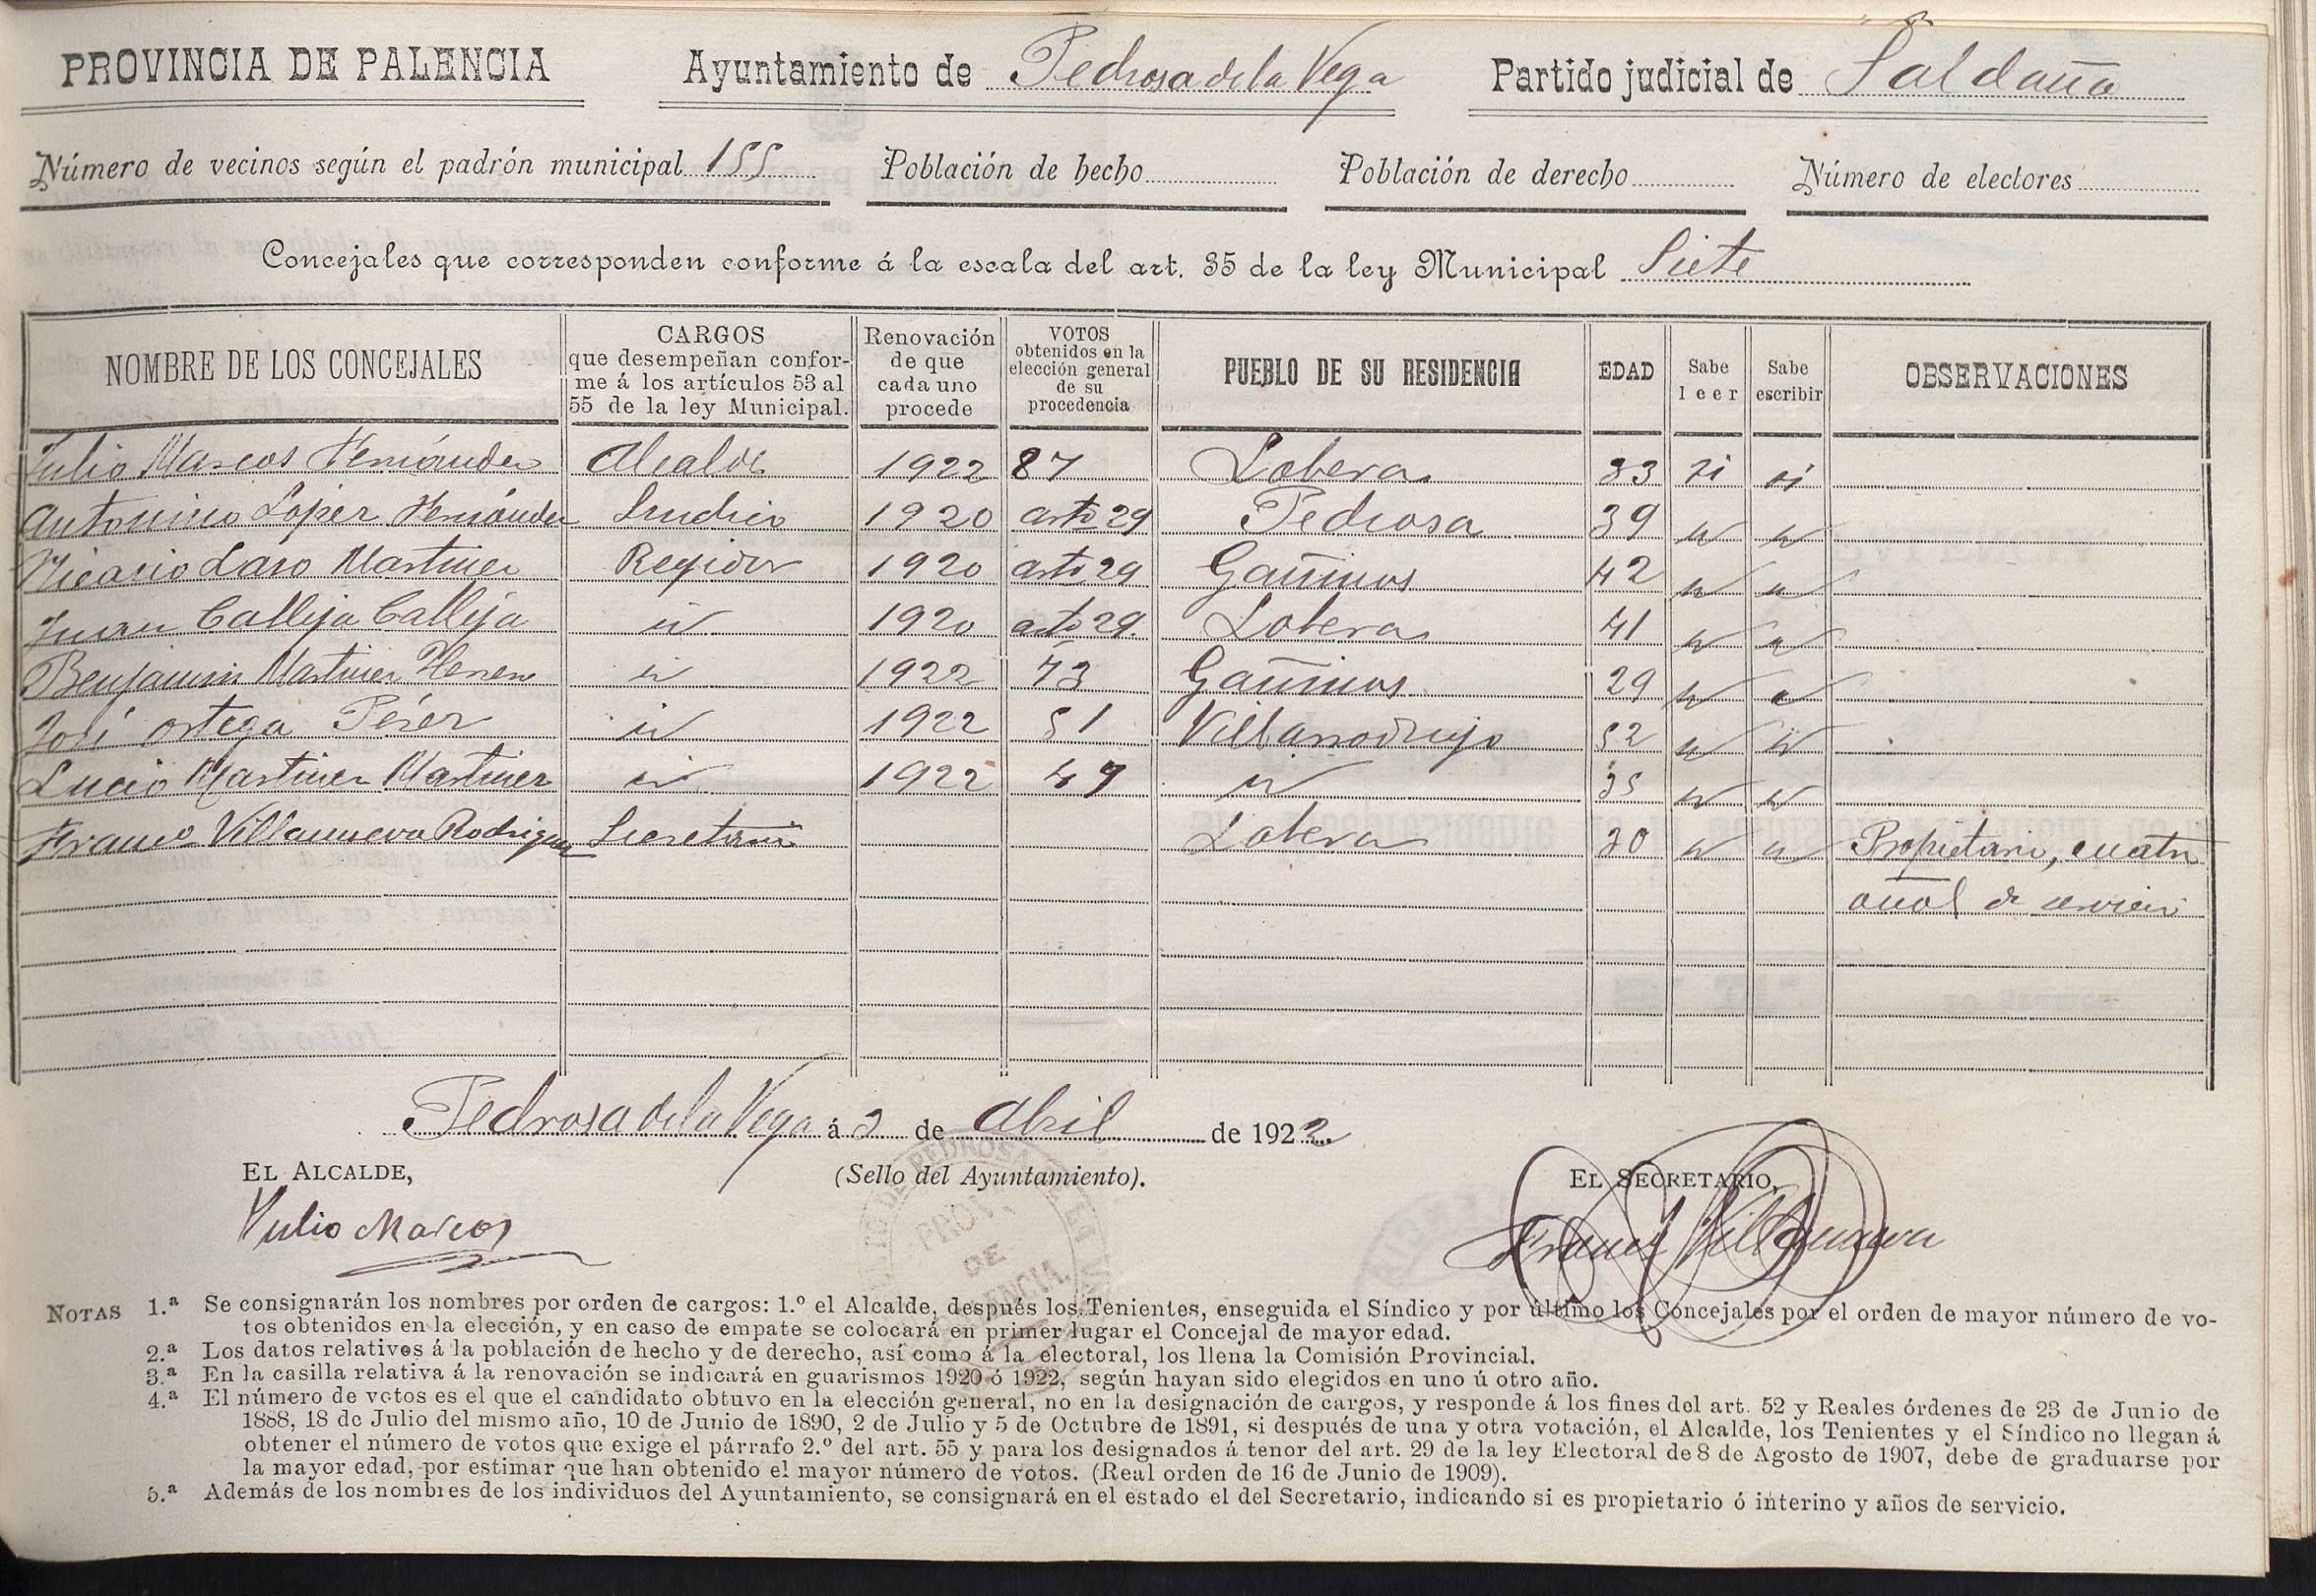 PROVINCIA DE PALENCIA Ayuntamiento de Pedrosa de la Vega Partido judicial de Saldaña
Número de vecinos según el padrón municipal 155 Población de hecho Población de derecho Número de electores
Concejales que corresponden conforme á la escala del art. 35 de la ley Municipal Siete
NOMBRE DE LOS CONCEJALES
CARGOS
que desempeñan confor-
me á los artículos 53 al
55 de la ley Municipal.
Renovación
de que
cada uno
procede
VOTOS
obtenidos en la
elección general
de su
procedencia
PUEBLO DE SU RESIDENCIA
EDAD
Sabe
leer
Sabe
escribir
OBSERVACIONES
Julio Marcos Fernández Alcalde 1922 87 Lobera 33 si si
Antonino López Fernández Sindico 1920 artº 29 Pedrosa 39 id id
Vicario Laso Martinez Regidor 1920 artº 29 Gañinas 42 id id
Juan Calleja Calleja id 1920 artº 29. Lobera 41 id id
Benjamin Martinez Herrero id 1922 73 Gañinas 29 id id
José Ortega Pérez id 1922 51 Villarrodrigo 52 id id
Lucio Martinez Martinez id 1922 47 id 35 id id
Francº Villanueva Rodriguez Secretario Lobera 30 id id Propietario, cuatro
años de servicio
Pedrosa de la Vega á 2 de Abril de 1922.
EL ALCALDE, (Sello del Ayuntamiento). EL SECRETARIO,
Julio Marcos Francº Villanueva
PROV. DE
NOTAS 1.ª Se consignarán los nombres por orden de cargos: 1.º el Alcalde, después los Tenientes, enseguida el Síndico y por último los Concejales por el orden de mayor número de vo-
tos obtenidos en la elección, y en caso de empate se colocará en primer lugar el Concejal de mayor edad.
2.ª Los datos relativos á la población de hecho y de derecho, así como á la electoral, los llena la Comisión Provincial.
3.ª En la casilla relativa á la renovación se indicará en guarismos 1920 ó 1922, según hayan sido elegidos en uno ú otro año.
4.ª El número de votos es el que el candidato obtuvo en la elección general, no en la designación de cargos, y responde á los fines del art. 52 y Reales órdenes de 23 de Junio de
1888, 18 de Julio del mismo año, 10 de Junio de 1890, 2 de Julio y 5 de Octubre de 1891, si después de una y otra votación, el Alcalde, los Tenientes y el Síndico no llegan á
obtener el número de votos que exige el párrafo 2.º del art. 55 y para los designados á tenor del art. 29 de la ley Electoral de 8 de Agosto de 1907, debe de graduarse por
la mayor edad, por estimar que han obtenido el mayor número de votos. (Real orden de 16 de Junio de 1909).
5.ª Además de los nombres de los individuos del Ayuntamiento, se consignará en el estado el del Secretario, indicando si es propietario ó interino y años de servicio.